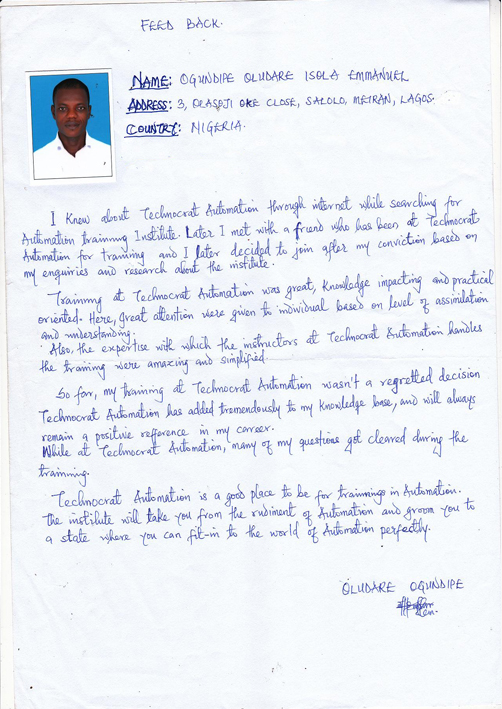 FEED BACK.
NAME: OGUNDIPE OLUDARE ISOLA EMMANUEL
ADDRESS: 3, OLASOJI OKE CLOSE, SALOLO, MEIRAN, LAGOS.
COUNTRY: NIGERIA.
I knew about Technocrat Automation through internet while searching for
Automation training Institute. Later I met with a friend who has been at Technocrat
Automation for training and I later decided to join after my conviction based on
my enquiries and research about the institute.
Training at Technocrat Automation was great, knowledge impacting and practical
oriented. Here, great attention were given to individual based on level of assimilation
and understanding.
Also, the expertise with which the instructors at Technocrat Automation handles
the training were amazing and simplified.
So far, my training at Technocrat Automation wasn't a regretted decision
Technocrat Automation has added tremendously to my knowledge base, and will always
remain a positive refference in my career.
While at Technocrat Automation, many of my questions got cleared during the
trainning.
Technocrat Automation is a good place to be for trainings in Automation.
The institute will take you from the rudiment of Automation and groom you to
a state where you can fit-in to the world of Automation perfectly.
OLUDARE OGUNDIPE